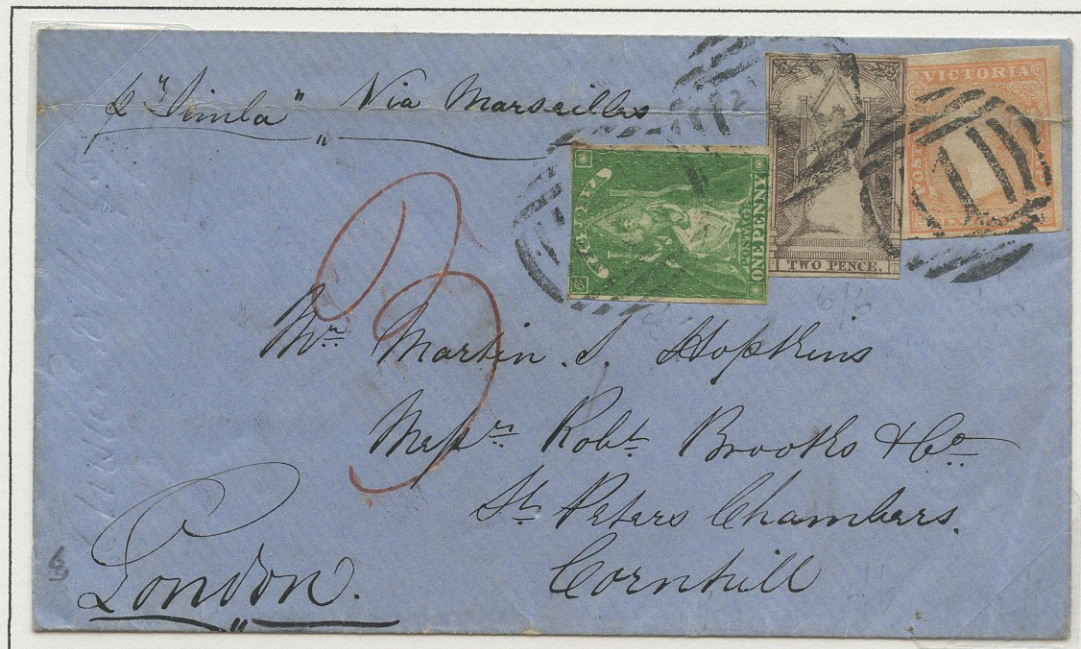 p "Simla" Via Marseilles
VICTORIA
POSTAGE
ONE PENNY
TWO PENCE.
VICTORIA
3
Mr. Martin S. Hopkins
Messrs Robt Brooks & Co
St. Peters Chambers.
Cornhill
London.